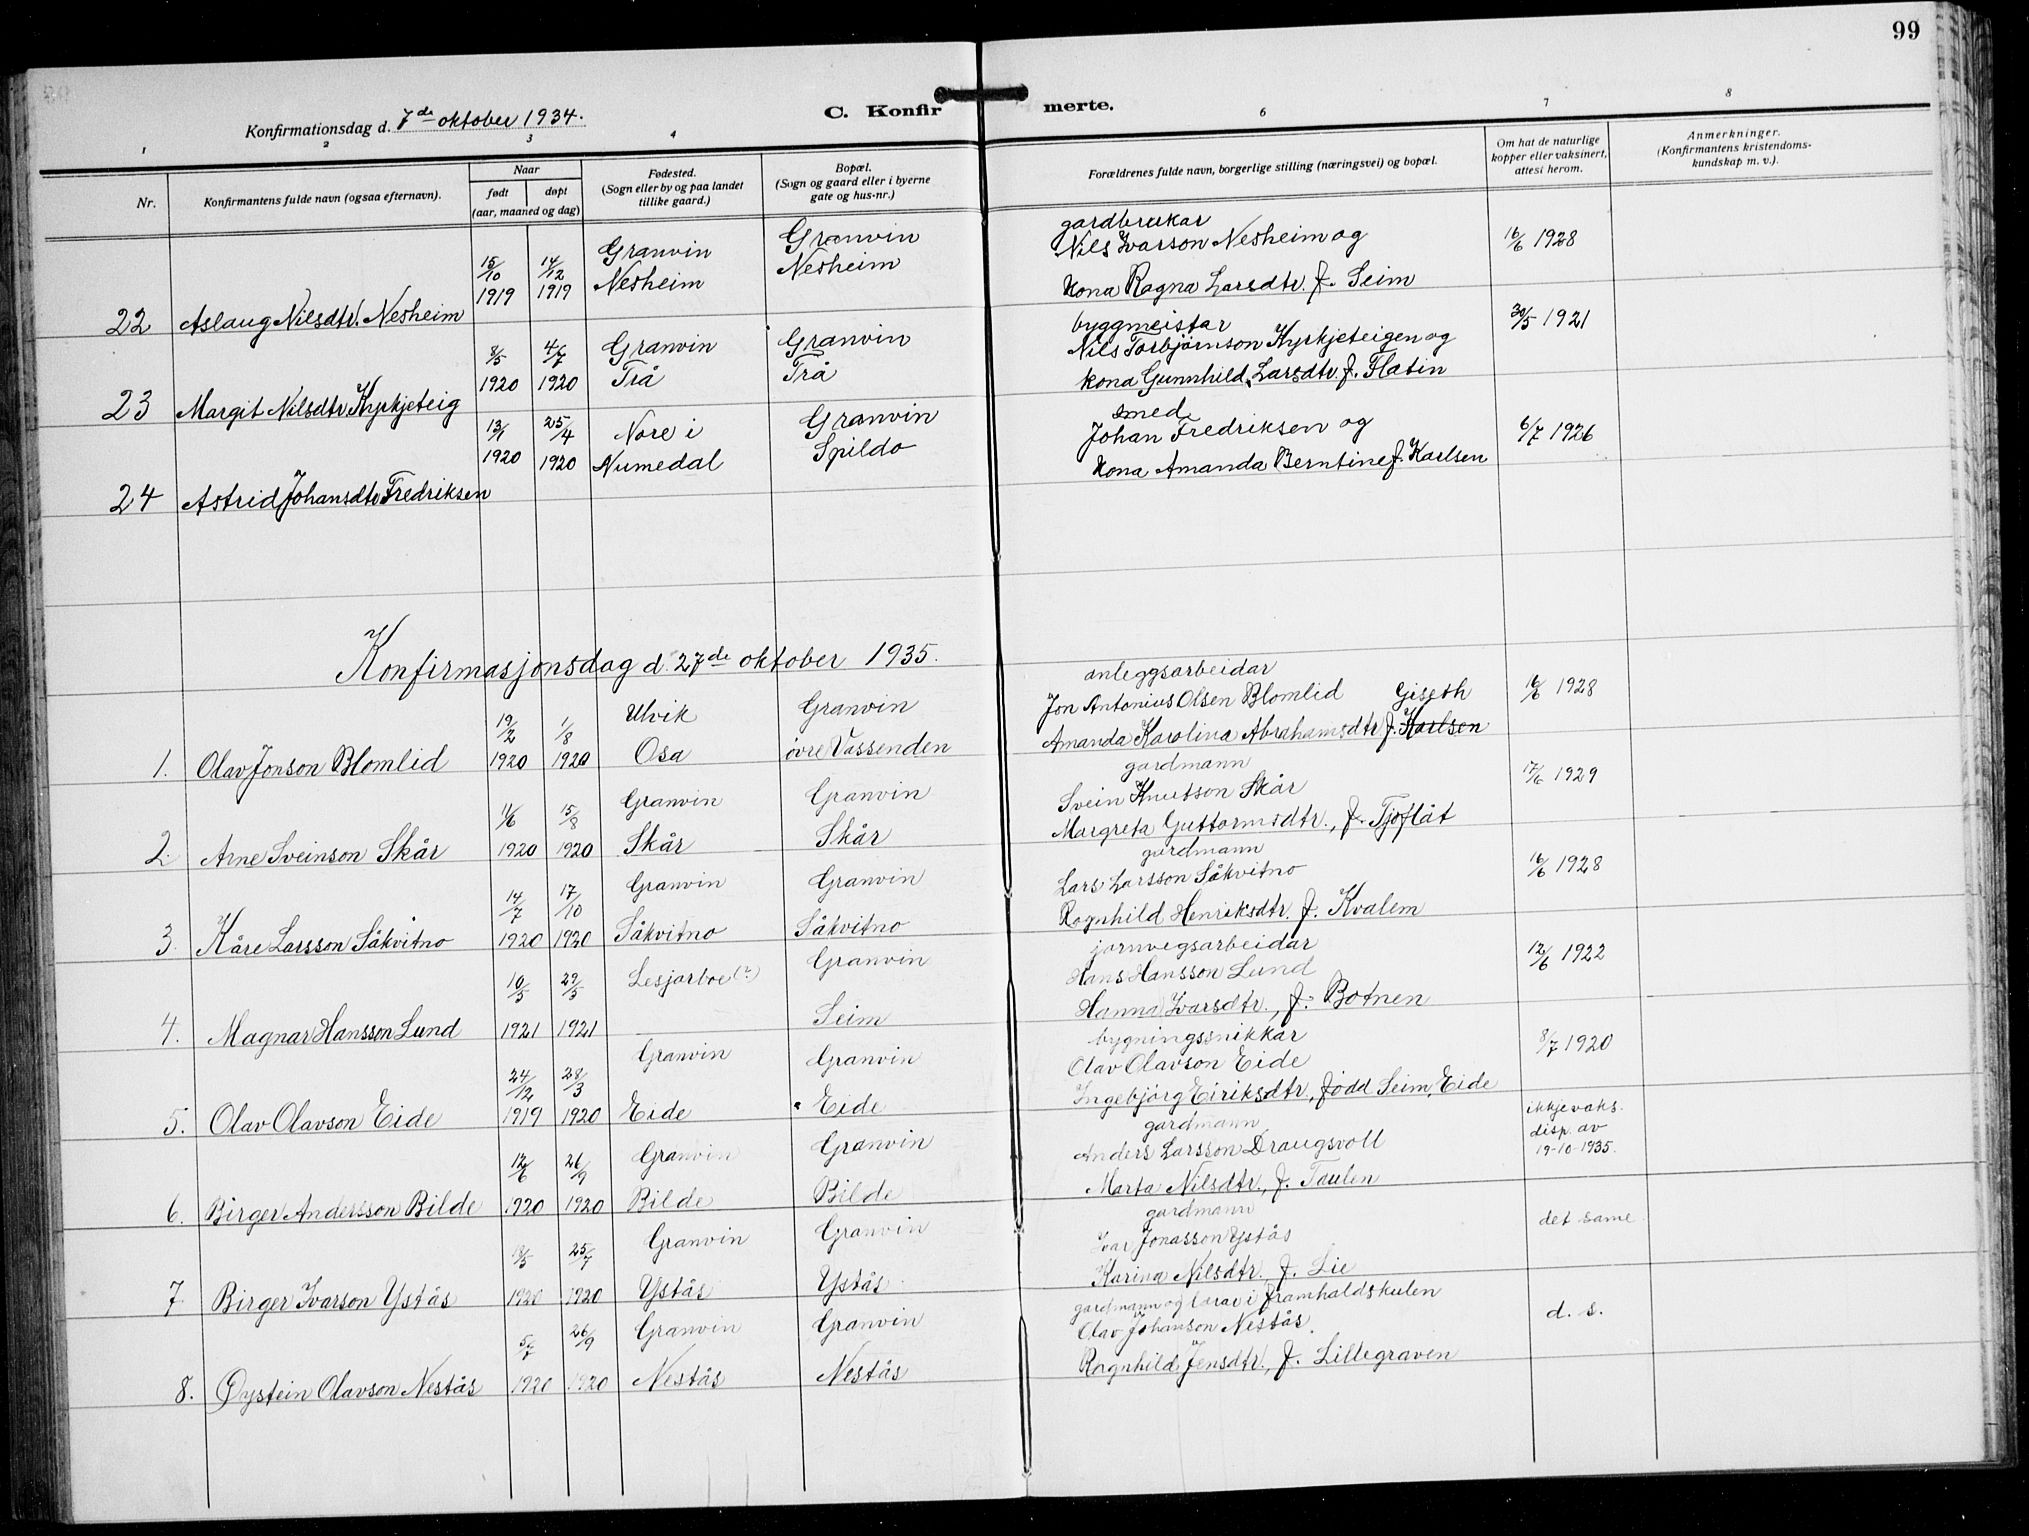 99
C. Konfirmerte.
Konfirmationsdag d. 7de oktober 1934.
1 2 3 4 6 7 8
Nr.
Konfirmantens fulde navn (ogsaa efternavn).
Naar
født døpt
(aar, maaned og dag)
Fødested.
(Sogn eller by og paa landet
tillike gaard.)
Bopæl.
(Sogn og gaard eller i byerne
gate og hus-nr.)
Forældrenes fulde navn, borgerlige stilling (næringsvei) og bopæl.
Om hat de naturlige
kopper eller vaksinert,
attest herom.
Anmerkninger.
(Konfirmantens kristendoms-
kundskap m. v.).
22 Aslaug Nilsdtr. Nesheim
15/10 1919
14/12 1919
Granvin
Nesheim
Granvin
Nesheim
gardbrukar
Nils Ivarson Nesheim og
kona Ragna Larsdtr. f. Seim
16/6 1928
23 Margit Nilsdtr Kyrkjeteig
8/5 1920
4/7 1920
Granvin
Trå
Granvin
Trå
byggmeistar
Nils Torbjørnson Kyrkjeteigen og
kona Gunnhild Larsdtr. f. Flatin
30/5 1921
24 Astrid Johansdtr Fredriksen
13/1 1920
25/4 1920
Nore i
Numedal
Granvin
Spildo
smed
Johan Fredriksen og
kona Amanda Berntine f. Karlsen
6/7 1926
Konfirmasjonsdag d. 27de oktober 1935.
1. Olav Jonson Blomlid
19/2 1920
1/8 1920
Ulvik
Osa
Granvin
øvre Vassenden
anleggsarbeidar
Jon Antonius Olsen Blomlid Giseth
Amanda Karolina Abrahamsdtr f. Karlsen
16/6 1928
2. Arne Sveinson Skår
11/6 1920
15/8 1920
Granvin
Skår
Granvin
Skår
gardmann
Svein Knutson Skår
Margreta Guttormsdtr., f. Tjoflåt
17/6 1929
3. Kåre Larsson Såkvitno
14/7 1920
17/10 1920
Granvin
Såkvitno
Granvin
Såkvitno
gardmann
Lars Larsson Såkvitno
Ragnhild Henriksdtr. f. Kvalem
16/6 1928
4. Magnar Hansson Lund
10/5 1921
29/5 1921
Granvin
Seim
jarnvegsarbeidar
Hans Hansson Lund
Hanna Ivarsdtr., f. Botnen
12/6 1922
5. Olav Olavson Eide
24/12 1919
28/3 1920
Granvin
Eide
Granvin
Eide
bygningssnikkar
Olav Olavson Eide
Ingebjørg Eiriksdtr., fødd Seim, Eide
8/7 1920
6. Birger Andersson Bilde
12/6 1920
26/9 1920
Granvin
Bilde
Granvin
Bilde
gardmann
Anders Larsson Draugsvoll
Marta Nilsdtr., f. Taulen
ikkje vaks.
disp. av
19-10-1935.
7 Birger Ivarson Ystås
1920
25/7 1920
Granvin
Ystås
Granvin
Ystås
gardmann
Ivar Jonasson Ystås
Karina Nilsdtr. f. Lie
det same
8. Øystein Olavson Nestås
5/7 1920
26/9 1920
Granvin
Nestås
Granvin
Nestås
gardmann og lærar i framhaldskulen
Olav Johanson Nestås.
Ragnhild Jensdtr., f. Lillegraven
d. s.